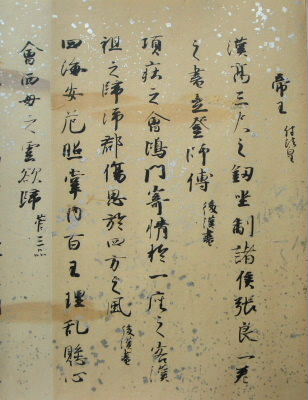 帝王 付法皇
漢高三尺之劒坐制諸侯張良一卷
之書立登師傅 後漢書
項荘之會鴻門寄情於一座之客漢
祖之歸沛郡傷思於四方之風 後漢書
四海安危照掌内百王理乱懸心
會西母之雲欲歸 菅三品